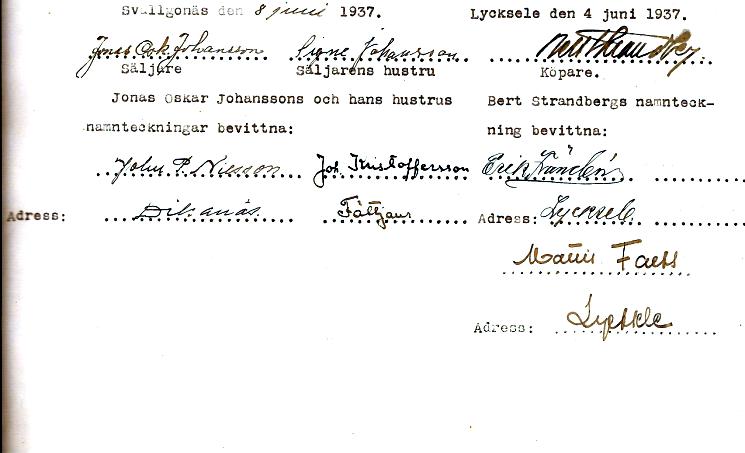 Svallgonäs den 8 juni 1937.
Lycksele den 4 juni 1937.
Jonas Osk Johansson
Signe Johansson
Bert Strandberg
Säljare
Säljarens hustru
Köpare.
Jonas Oskar Johanssons och hans hustrus
namnteckningar bevittna:
Bert Strandbergs namnteck-
ning bevittna:
John P. Nilsson
Joh. Kristoffersson
Erik
Adress: Dikanäs
Fättjaur
Adress: Lycksele
Adress: Lycksele